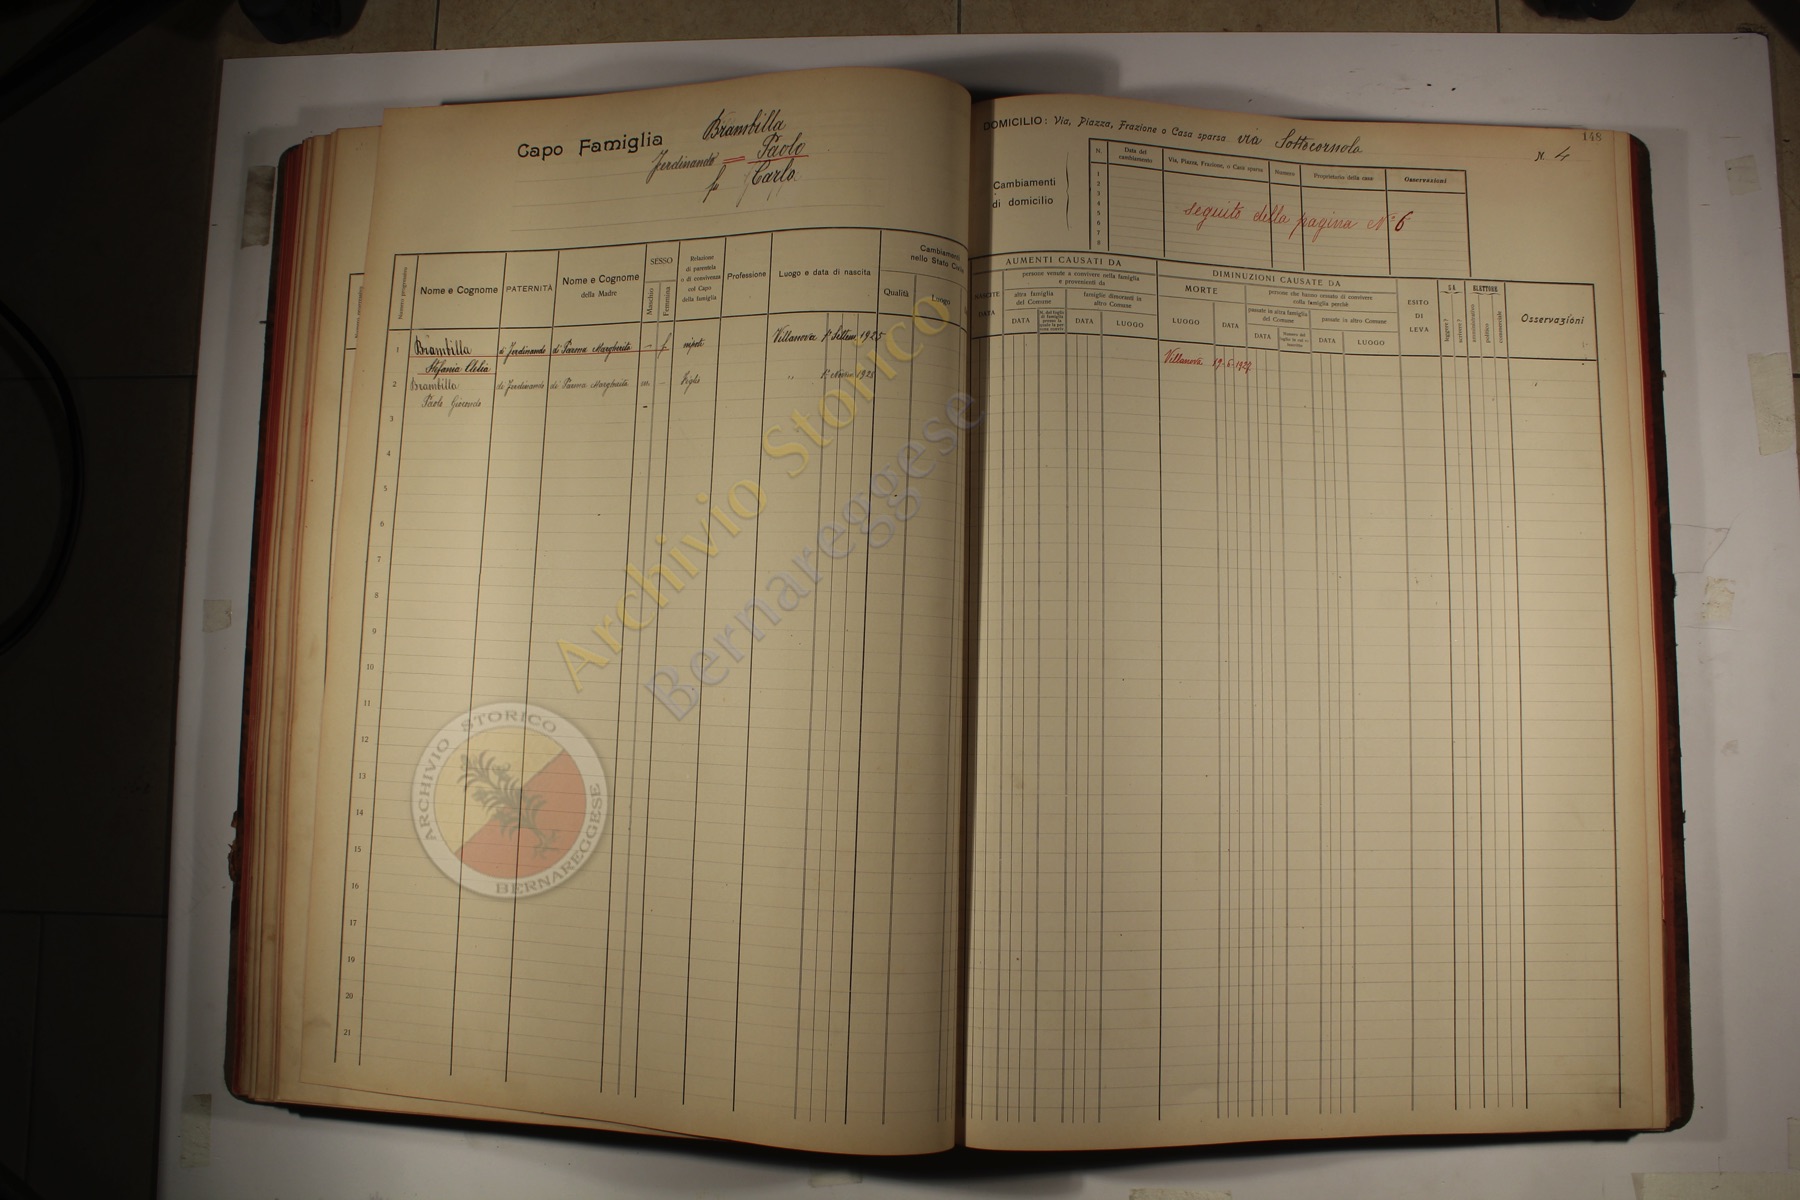 Capo Famiglia Brambilla
Ferdinando = Paolo
fu Carlo
Numero progressivo
Nome e Cognome
PATERNITÀ
Nome e Cognome
della Madre
SESSO
Maschio
Femmina
Relazione
di parentela
o di convivenza
col Capo
della famiglia
Professione
Luogo e data di nascita
Cambiamenti
nello Stato Civile
Qualità
Luogo
1 Brambilla di Ferdinando di Parma Margherita — f nipote Villanova 1° Settem. 1925
Stefania Clelia
2 Brambilla di Ferdinando di Parma Margherita m. — Figlio " 1925
Paolo Giocondo
3
4
5
6
7
8
9
10
11
12
13
14
15
16
17
18
19
20
21
148
DOMICILIO: Via, Piazza, Frazione o Casa sparsa via Sottocornola N. 4
Cambiamenti
di domicilio
N.
Data del
cambiamento
Via, Piazza, Frazione, o Casa sparsa
Numero
Proprietario della casa
Osservazioni
1
2
3
4
5
6
7
8
seguito della pagina N° 6
AUMENTI CAUSATI DA
NASCITE
DATA
persone venute a convivere nella famiglia
e provenienti da
altra famiglia
del Comune
DATA
famiglie dimoranti in
altro Comune
DATA
LUOGO
DIMINUZIONI CAUSATE DA
MORTE
LUOGO
DATA
persone che hanno cessato di convivere
colla famiglia perchè
passate in altra famiglia
del Comune
DATA
passate in altro Comune
DATA
LUOGO
ESITO
DI
LEVA
SA
leggere?
scrivere?
ELETTORE
amministrativo
politico
commerciale
Osservazioni
Villanova 19-6-1927
Archivio Storico
Bernareggese
ARCHIVIO STORICO
BERNAREGGESE